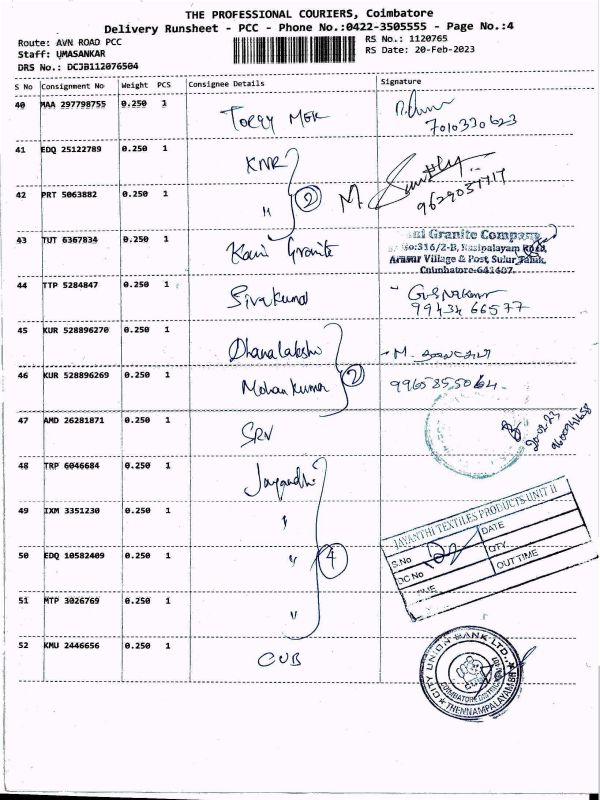 THE PROFESSIONAL COURIERS, Coimbatore
Delivery Runsheet - PCC - Phone No.:0422-3505555 - Page No.:4
Route: AVN ROAD PCC RS No.: 1120765
Staff: UMASANKAR RS Date: 20-Feb-2023
DRS No.: DCJB112076504
S No Consignment No Weight PCS Consignee Details Signature
40 MAA 297798755 0.250 1
7010330623
41 EDQ 25122789 0.250 1 KNR
42 PRT 5063882 0.250 1 " 2 M. 9629037717
43 TUT 6367834 0.250 1 Kani Granite
ni Granite Company
No:316/2-B, Rasipalayam Road,
Arasur Village & Post, Sulur Taluk,
Coimbatore-641407.
44 TTP 5284847 0.250 1 Sivakumar
99434 66577
45 KUR 528896270 0.250 1 Dhanalakshmi - M.
46 KUR 528896269 0.250 1 Mohan Kumar 2 9965855064.
47 AMD 26281871 0.250 1 SRV
20-02-23
48 TRP 6046684 0.250 1 Jayandhi
49 IXM 3351230 0.250 1 "
50 EDQ 10582409 0.250 1 " 4
51 MTP 3026769 0.250 1 "
JAYANTHI TEXTILES PRODUCTS-UNIT II
S.No DATE
DC No QTY.
TIME OUT TIME
52 KMU 2446656 0.250 1 CUB
CITY UNION BANK LTD.,
COIMBATORE DISTRICT
THENNAMPALAYAM BR